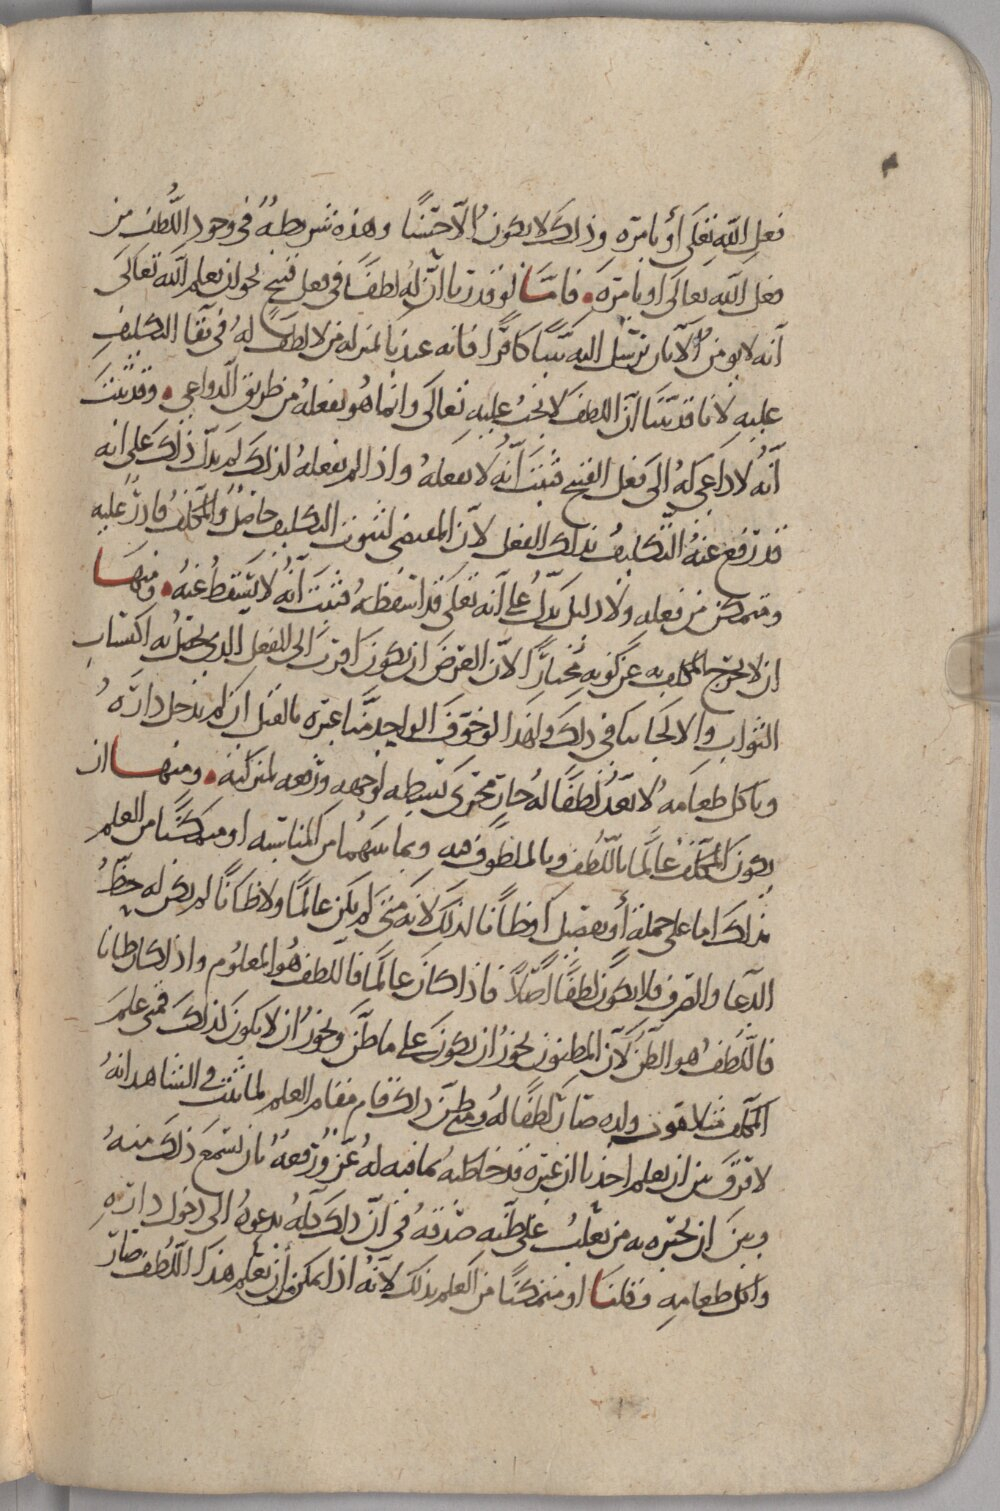 فعل الله تعالى أو بامره وذلك لا يكون الا حسنا وهذه شروطه في وجود اللطف من
فعل الله تعالى او بامره فاما لو قدرنا ان له لطفا في فعل قبيح نحو ان يعلم الله تعالى
انه لا يومن الا بان يرسل اليه نبيا كافرا فانه عندنا بمنزلة من لا لطف له في بقا التكليف
عليه لانا قد بينا ان اللطف لا يجب عليه تعالى وانما هو يفعله من طريق الدواعي وقد ثبت
انه لا داعي له الى فعل القبيح فثبت انه لا يفعله واذا لم يفعله لذلك لم يدل ذلك على انه
قد رفع عنه التكليف بذلك الفعل لان المقتضي لثبوت التكليف حاصل والمكلف قادر عليه
ومتمكن من فعله ولا دليل يدل على انه تعالى قد اسقطه فثبت انه لا يسقط عنه ومنها
ان لا يخرج المكلف به عن كونه مختارا لان الغرض ان يكون اقرب الى الفعل الذي يحصل به اكتساب
الثواب والالجا ينافي ذلك ولهذا لو خوف الواحد منا غيره بالقتل ان لم يدخل داره
وياكل طعامه لا يعد لطفا له جار مجرى تبسطه لوجهه ورفعه لمنزلته ومنها ان
يكون المكلف عالما باللطف وبالملطوف فيه وبما بينهما من المناسبه او متمكنا من العلم
بذلك اما على جملة أو تفصيل او ظانا لذلك لانه متى لم يكن عالما ولا ظانا لم يكن له حظ
الدعا والصرف فلا يكون لطفا اصلا فاذا كان عالما فاللطف هو المعلوم واذا كان ظانا
فاللطف هو الظن لان المظنون يجوز ان يكون على ما ظن ويجوز ان لا يكون كذلك فمتى علم
المكلف مثلا موت ولده صار لطفا له ومتى ظن ذلك قام مقام العلم لما ثبت في الشاهد انه
لا فرق بين ان يعلم احدنا ان غيره قد خاطبه بما فيه له عز ورفعة بان يسمع ذلك منه
وبين ان يخبره به من يغلب على ظنه صدقه في ان ذلك كله يدعوه الى دخول داره
واكل طعامه وقلنا او متمكنا من العلم بذلك لانه اذا تمكن من ان يعلم هذا اللطف صار